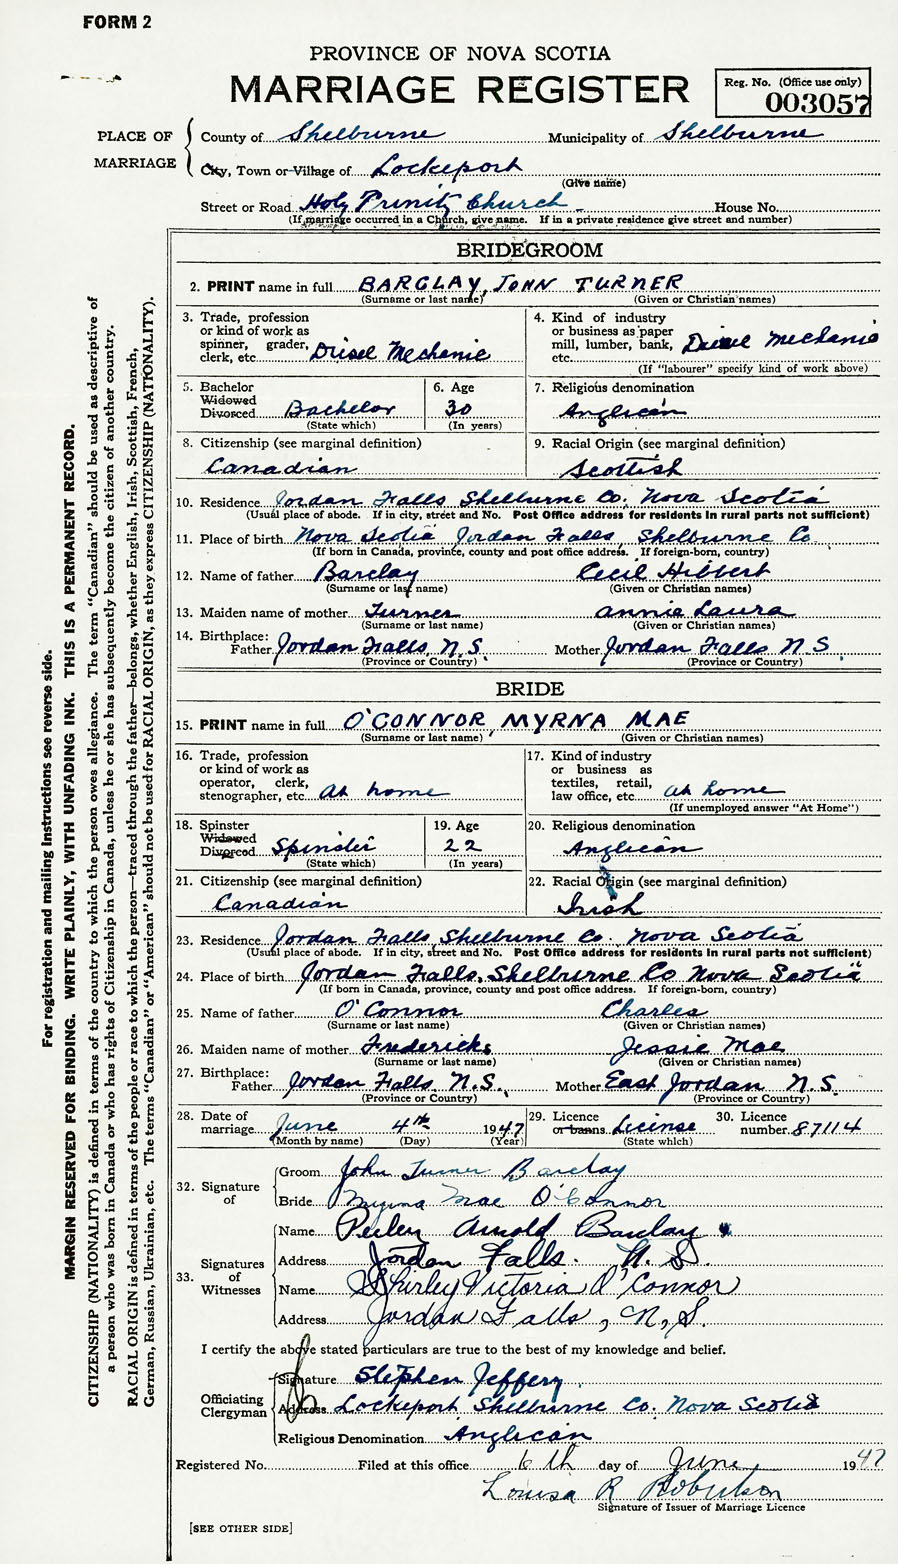 FORM 2
PROVINCE OF NOVA SCOTIA
MARRIAGE REGISTER
Reg. No. (Office use only)
003057
PLACE OF MARRIAGE
County of Shelburne Municipality of Shelburne
City, Town or Village of Lockeport
(Give name)
Street or Road Holy Trinity Church House No.
(If marriage occurred in a Church, give name. If in a private residence give street and number)
BRIDEGROOM
2. PRINT name in full BARCLAY, JOHN TURNER
(Surname or last name) (Given or Christian names)
3. Trade, profession
or kind of work as
spinner, grader,
clerk, etc. Diesel Mechanic
4. Kind of industry
or business as paper
mill, lumber, bank,
etc. Diesel Mechanic
(If "labourer" specify kind of work above)
5. Bachelor
Widowed
Divorced Bachelor
(State which)
6. Age
30
(In years)
7. Religious denomination
Anglican
8. Citizenship (see marginal definition)
Canadian
9. Racial Origin (see marginal definition)
Scottish
10. Residence Jordan Falls Shelburne Co. Nova Scotia
(Usual place of abode. If in city, street and No. Post Office address for residents in rural parts not sufficient)
11. Place of birth Nova Scotia Jordan Falls, Shelburne Co
(If born in Canada, province, county and post office address. If foreign-born, country)
12. Name of father Barclay Cecil Hibbert
(Surname or last name) (Given or Christian names)
13. Maiden name of mother Turner Annie Laura
(Surname or last name) (Given or Christian names)
14. Birthplace:
Father Jordan Falls, N.S. Mother Jordan Falls N.S.
(Province or Country) (Province or Country)
BRIDE
15. PRINT name in full O'CONNOR, MYRNA MAE
(Surname or last name) (Given or Christian names)
16. Trade, profession
or kind of work as
operator, clerk,
stenographer, etc. At home
17. Kind of industry
or business as
textiles, retail,
law office, etc. at home
(If unemployed answer "At Home")
18. Spinster
Widowed
Divorced Spinster
(State which)
19. Age
22
(In years)
20. Religious denomination
Anglican
21. Citizenship (see marginal definition)
Canadian
22. Racial Origin (see marginal definition)
Irish
23. Residence Jordan Falls Shelburne Co. Nova Scotia
(Usual place of abode. If in city, street and No. Post Office address for residents in rural parts not sufficient)
24. Place of birth Jordan Falls, Shelburne Co Nova Scotia
(If born in Canada, province, county and post office address. If foreign-born, country)
25. Name of father O'Connor Charles
(Surname or last name) (Given or Christian names)
26. Maiden name of mother Fredericks Jessie Mae
(Surname or last name) (Given or Christian names)
27. Birthplace:
Father Jordan Falls N.S. Mother East Jordan N.S.
(Province or Country) (Province or Country)
28. Date of
marriage June 4th 1947
(Month by name) (Day) (Year)
29. Licence
or banns License
(State which)
30. Licence
number 87114
32. Signature of
Groom John Turner Barclay
Bride Myrna Mae O'Connor
33. Signatures of Witnesses
Name Perley Arnold Barclay
Address Jordan Falls. N.S.
Name Shirley Victoria O'Connor
Address Jordan Falls, N.S.
I certify the above stated particulars are true to the best of my knowledge and belief.
Officiating Clergyman
Signature Stephen Jeffery
Address Lockeport Shelburne Co. Nova Scotia
Religious Denomination Anglican
Registered No. Filed at this office 6th day of June 1947
Louisa R Robertson
Signature of Issuer of Marriage Licence
[SEE OTHER SIDE]
For registration and mailing instructions see reverse side.
MARGIN RESERVED FOR BINDING. WRITE PLAINLY, WITH UNFADING INK. THIS IS A PERMANENT RECORD.
CITIZENSHIP (NATIONALITY) is defined in terms of the country to which the person owes allegiance. The term "Canadian" should be used as descriptive of
a person who was born in Canada or who has rights of Citizenship in Canada, unless he or she has subsequently become the citizen of another country.
RACIAL ORIGIN is defined in terms of the people or race to which the person—traced through the father—belongs, whether English, Irish, Scottish, French,
German, Russian, Ukrainian, etc. The terms "Canadian" or "American" should not be used for RACIAL ORIGIN, as they express CITIZENSHIP (NATIONALITY).